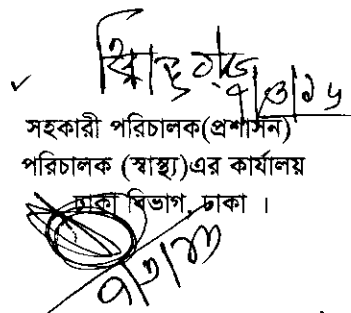 ৭/৩/১৬
সহকারী পরিচালক(প্রশাসন)
পরিচালক (স্বাস্থ্য)এর কার্যালয়
ঢাকা বিভাগ, ঢাকা ।